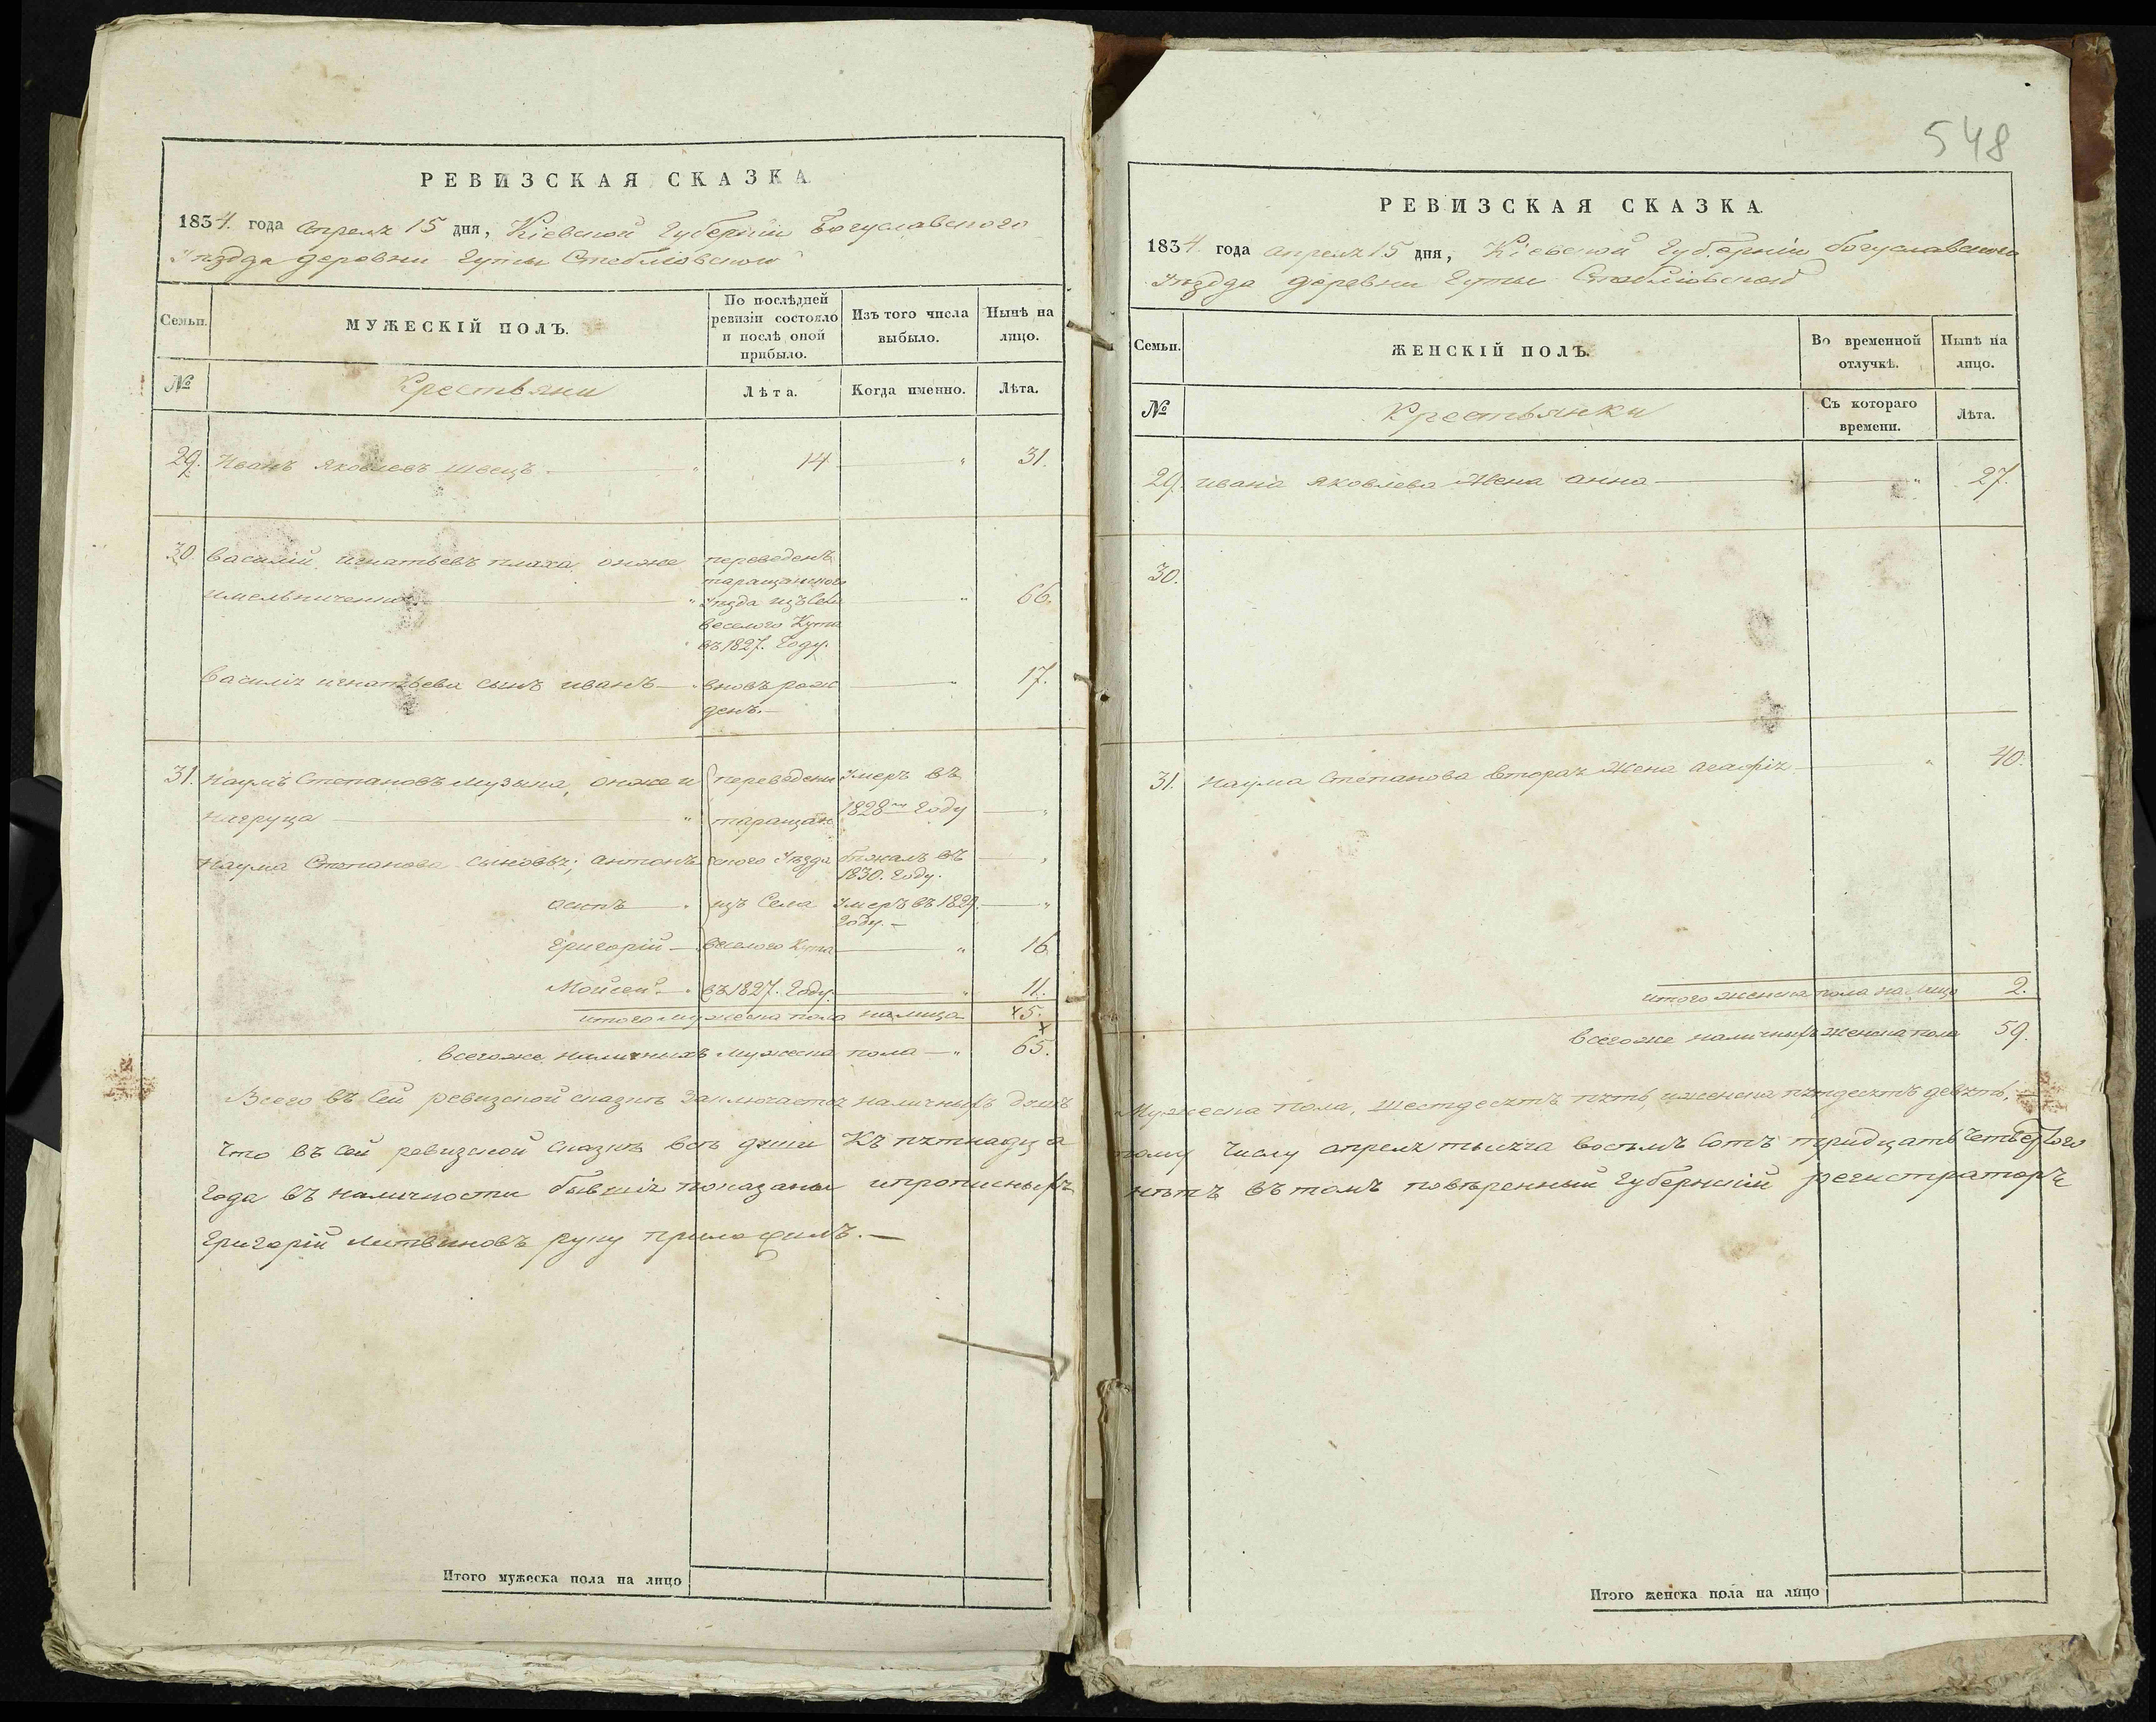 РЕВИЗСКАЯ СКАЗКА
1834. года апреля 15 дня, Кіевской Губерніи Богуславского
уѣзда деревни Гуты Стеблювской
Семьи.
МУЖЕСКІЙ ПОЛЪ.
По послѣдней ревизіи состояло и послѣ оной прибыло.
Изъ того числа выбыло.
Нынѣ на лицо.
№
Крестьяни
Лѣта.
Когда именно.
Лѣта.
29. Иванъ яковлевъ швецъ — " 14 — " 31.
30. василій игнатьевъ плаха онъже переведенъ
таращанского
имельниченко — " уѣзда изъ села — " 66.
веселого Кута
въ 1827. Году.
василія игнатьева сынъ иванъ — вновь рож — " 17.
денъ. —
31. наумъ Степановъ музыка, онъже и переведени умеръ въ
нигруца — " таращан 1828м Году — "
наума Степанова сыновья; антонъ ского уѣзда бѣжалъ въ — "
1830. Году.
осипъ — изъ Села умеръ въ 1829. — "
Году. —
григорій — веселого Кута — " 16
Мойсей — въ 1827. Году. — " 11.
итого мужеска пола налицо 5.
всегоже наличныхъ мужеска пола — " 65.
Всего въ сей ревизской сказкѣ заключается наличныхъ душъ
Что въ сей ревизской сказкѣ всѣ души Къ пятнадца
Года въ наличности бывшія показаны ипрописныхъ
Григорій Литвиновъ руку приложилъ. —
Итого мужеска пола на лицо
548
РЕВИЗСКАЯ СКАЗКА
1834 года апреля 15 дня, Кіевской Губерніи богуславского
уѣзда деревни Гуты Стеблювской
Семьи.
ЖЕНСКІЙ ПОЛЪ.
Во временной отлучкѣ.
Нынѣ на лицо.
№
Крестьянки
Съ котораго времени.
Лѣта.
29. ивана яковлева жена анна — " 27.
30.
31. наума Степанова вторая жена агафія — " 40.
итого женска пола на лицо 2.
всегоже наличныхъ женска пола 59.
Мужеска пола, шестдесятъ пять, иженска пятдесятъ девять, —
тому Числу апреля тысяча восемъ сотъ тридцать четвертого
нѣтъ въ томъ повѣренный Губернскій регистраторъ
Итого женска пола на лицо